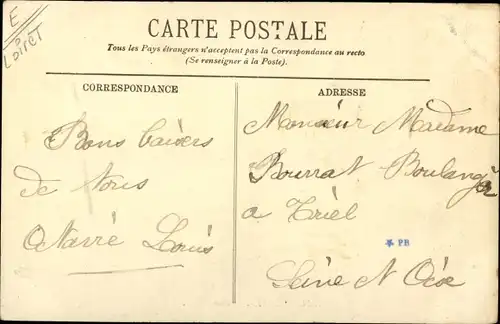 E
Loiret
CARTE POSTALE
Tous les Pays étrangers n'acceptent pas la Correspondance au recto
(Se renseigner à la Poste).
CORRESPONDANCE
Bons baisers
de Nous
Louis
ADRESSE
Monsieur Madame
Bourrat Boulanger
a Triel
* PB
Seine et Oise